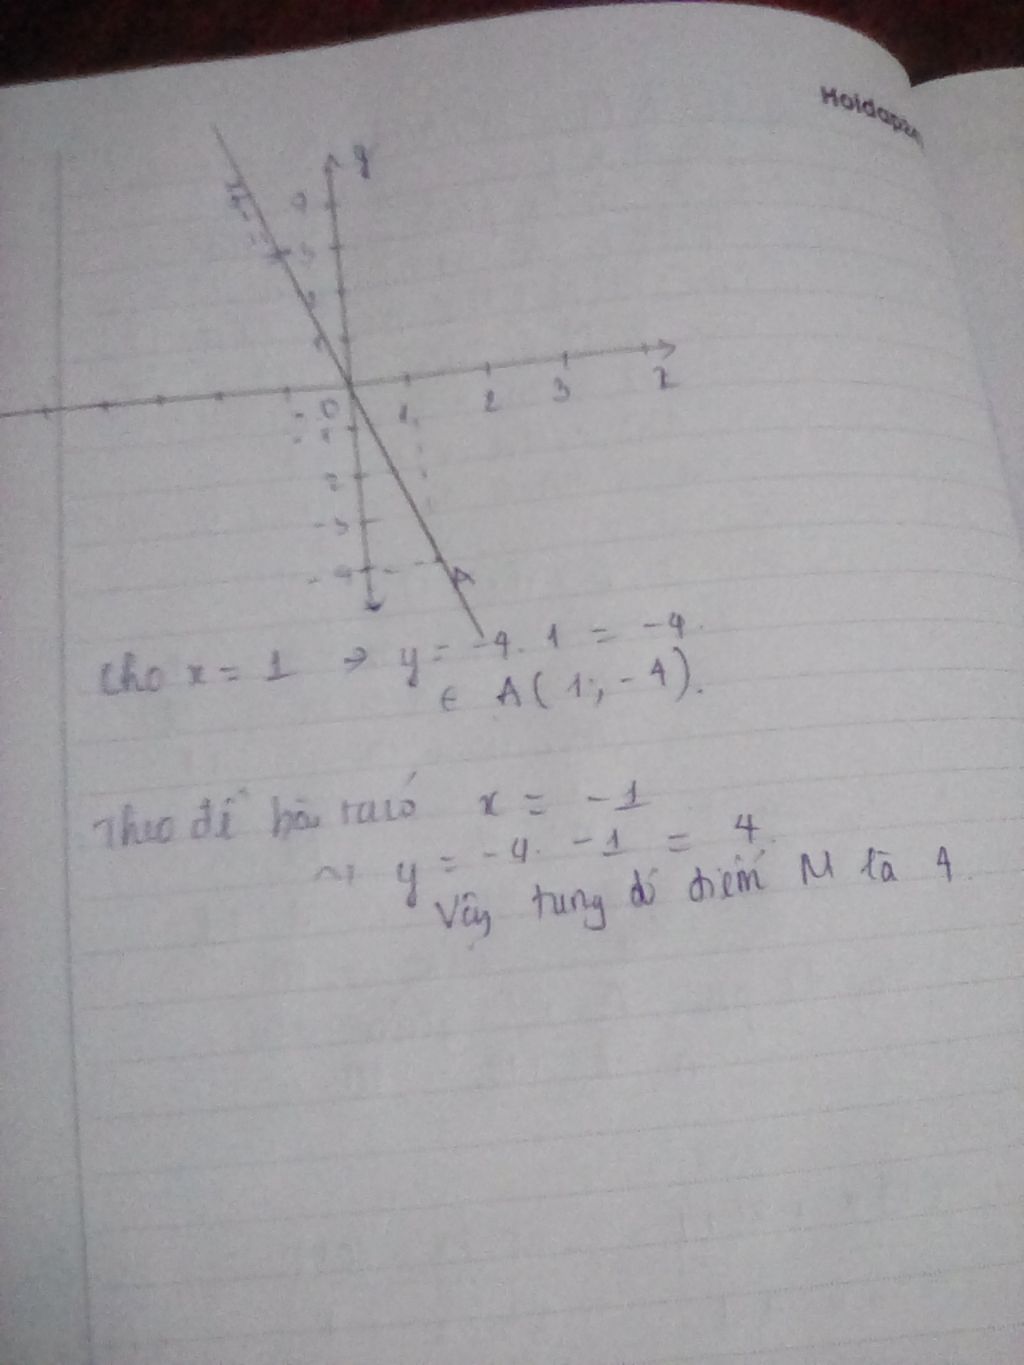 Hoidap247
y
4
3
2
1
0
1
2
3
x
-1
2
-3
-4
A
Cho x = 1 → y = -4. 1 = -4.
∈ A (1; -4).
Theo đề bài ta có x = -1
~> y = -4. -1 = 4.
Vậy tung độ điểm M là 4.